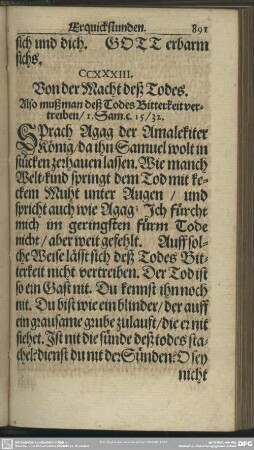 Erquickstunden. 891
sich und dich. GOTT erbarm
sichs.
CCXXXIII.
Von der Macht deß Todes.
Also muß man deß Todes Bitterkeit ver-
treiben/ 1. Sam. c. 15/32.
SPrach Agag der Amalekiter
König/ da ihn Samuel wolt in
stücken zerhauen lassen. Wie manch
Welt-kind springt dem Tod mit ke-
ckem Muht unter Augen / und
spricht auch wie Agag: Ich fürcht
mich im geringsten fürm Tode
nicht/ aber weit gefehlt. Auff sol-
che Weise läßt sich deß Todes Bit-
terkeit nicht vertreiben. Der Tod ist
so ein Gast nit. Du kennst ihn noch
nit. Du bist wie ein blinder/ der auff
ein grausame grube zulauft/ die er nit
siehet. Ist nit die sünde deß todes sta-
chel? dienst du nit der Sünden? O sey
nicht